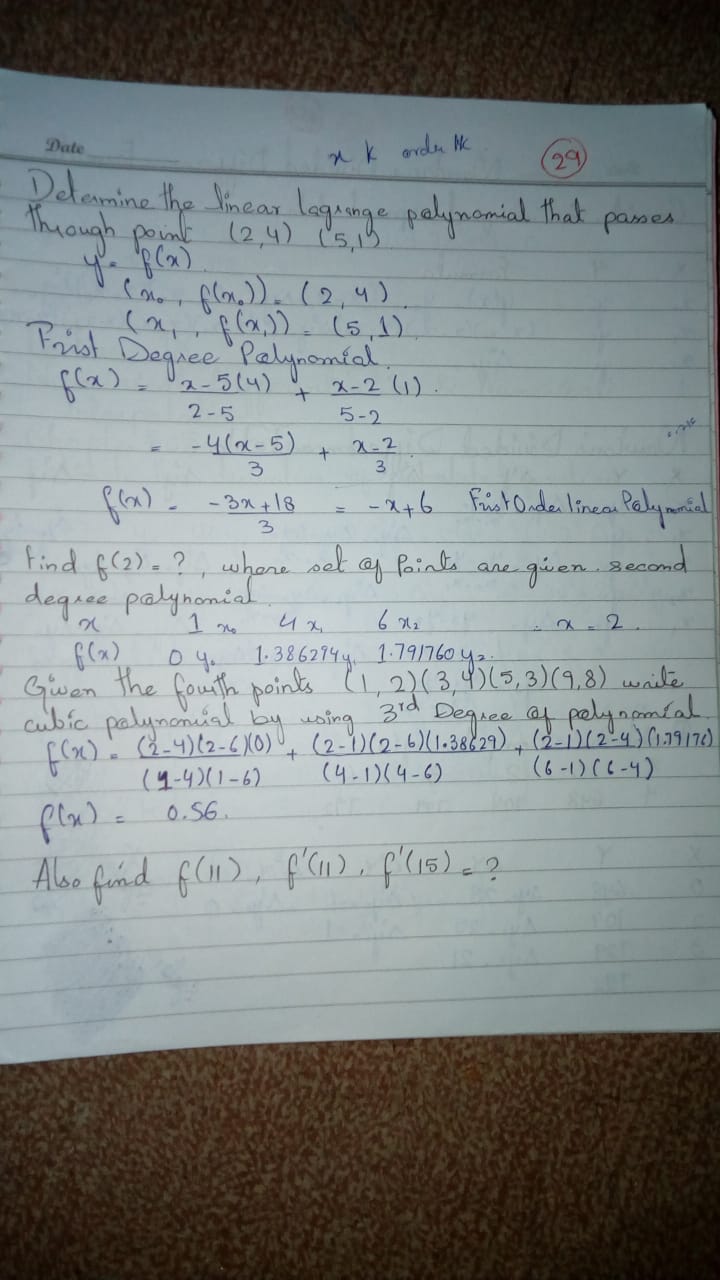 Date
x k order
29
Determine the linear lagrange polynomial that passes
through point (2,4) (5,1)
y = f(x)
(x₀, f(x₀)) = (2,4)
(x₁, f(x₁)) = (5,1)
Frist Degree Polynomial
f(x) = x-5(4)/2-5 + x-2/5-2 (1)
= -4(x-5)/3 + x-2/3
f(x) = -3x+18/3 = -x+6 Frist Order linear Polynomial
Find f(2) = ?, where set of Points are given. second
degree polynomial
x 1 x₀ 4 x₁ 6 x₂ ∴ x = 2.
f(x) 0 y₀ 1.386294 y₁ 1.791760 y₂.
Given the fourth points (1,2)(3,4)(5,3)(9,8) write
cubic polynomial by using 3rd Degree of polynomial
f(x) = (2-4)(2-6)(0)/(1-4)(1-6) + (2-1)(2-6)(1.38629)/(4-1)(4-6) + (2-1)(2-4)(1.79176)/(6-1)(6-4)
f(x) = 0.56.
Also find f(11), f'(11), f'(15) = ?